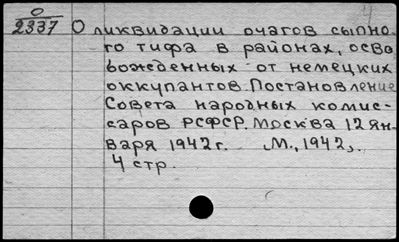 О
2337
О ликвидации очагов сыпно-
го тифа в районах, осво
вожденных от немецких
оккупантов. Постановление
Совета народных комис-
саров РСФСР. Москва 12 ян-
варя 1942 г. М., 1942.
4 стр.